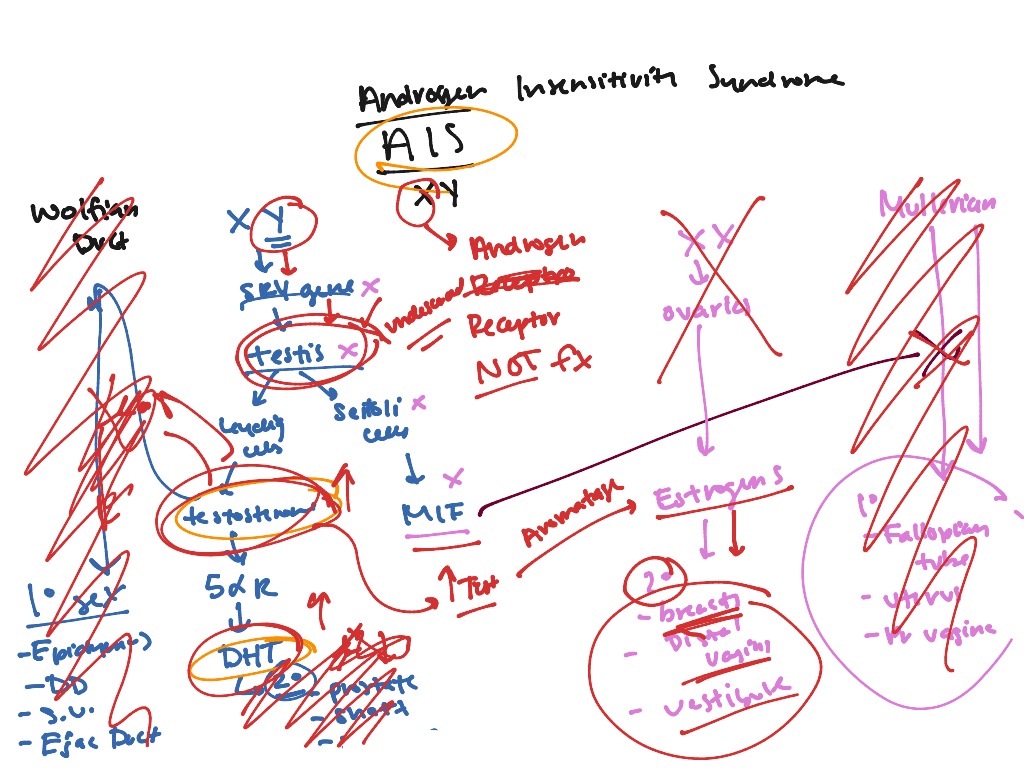 Androgen Insensitivity Syndrome
AIS
XY
Wolfian
Duct
X Y
SRY gene x
testis x
undescended
Androgen
Receptor
NOT fx
XX
ovaries
Mullerian
Leydig
cells
Sertoli x
cells
testosterone
x
MIF
Aromatase
Estrogens
5αR
↑ Test
DHT
2°
- prostate
- shaft
-
1° sex
- Epididymis
- DD
- S.V.
- Ejac Duct
2°
- breasts
- Distal
vagina
- vestibule
1°
- Fallopian
tube
- uterus
- vagina